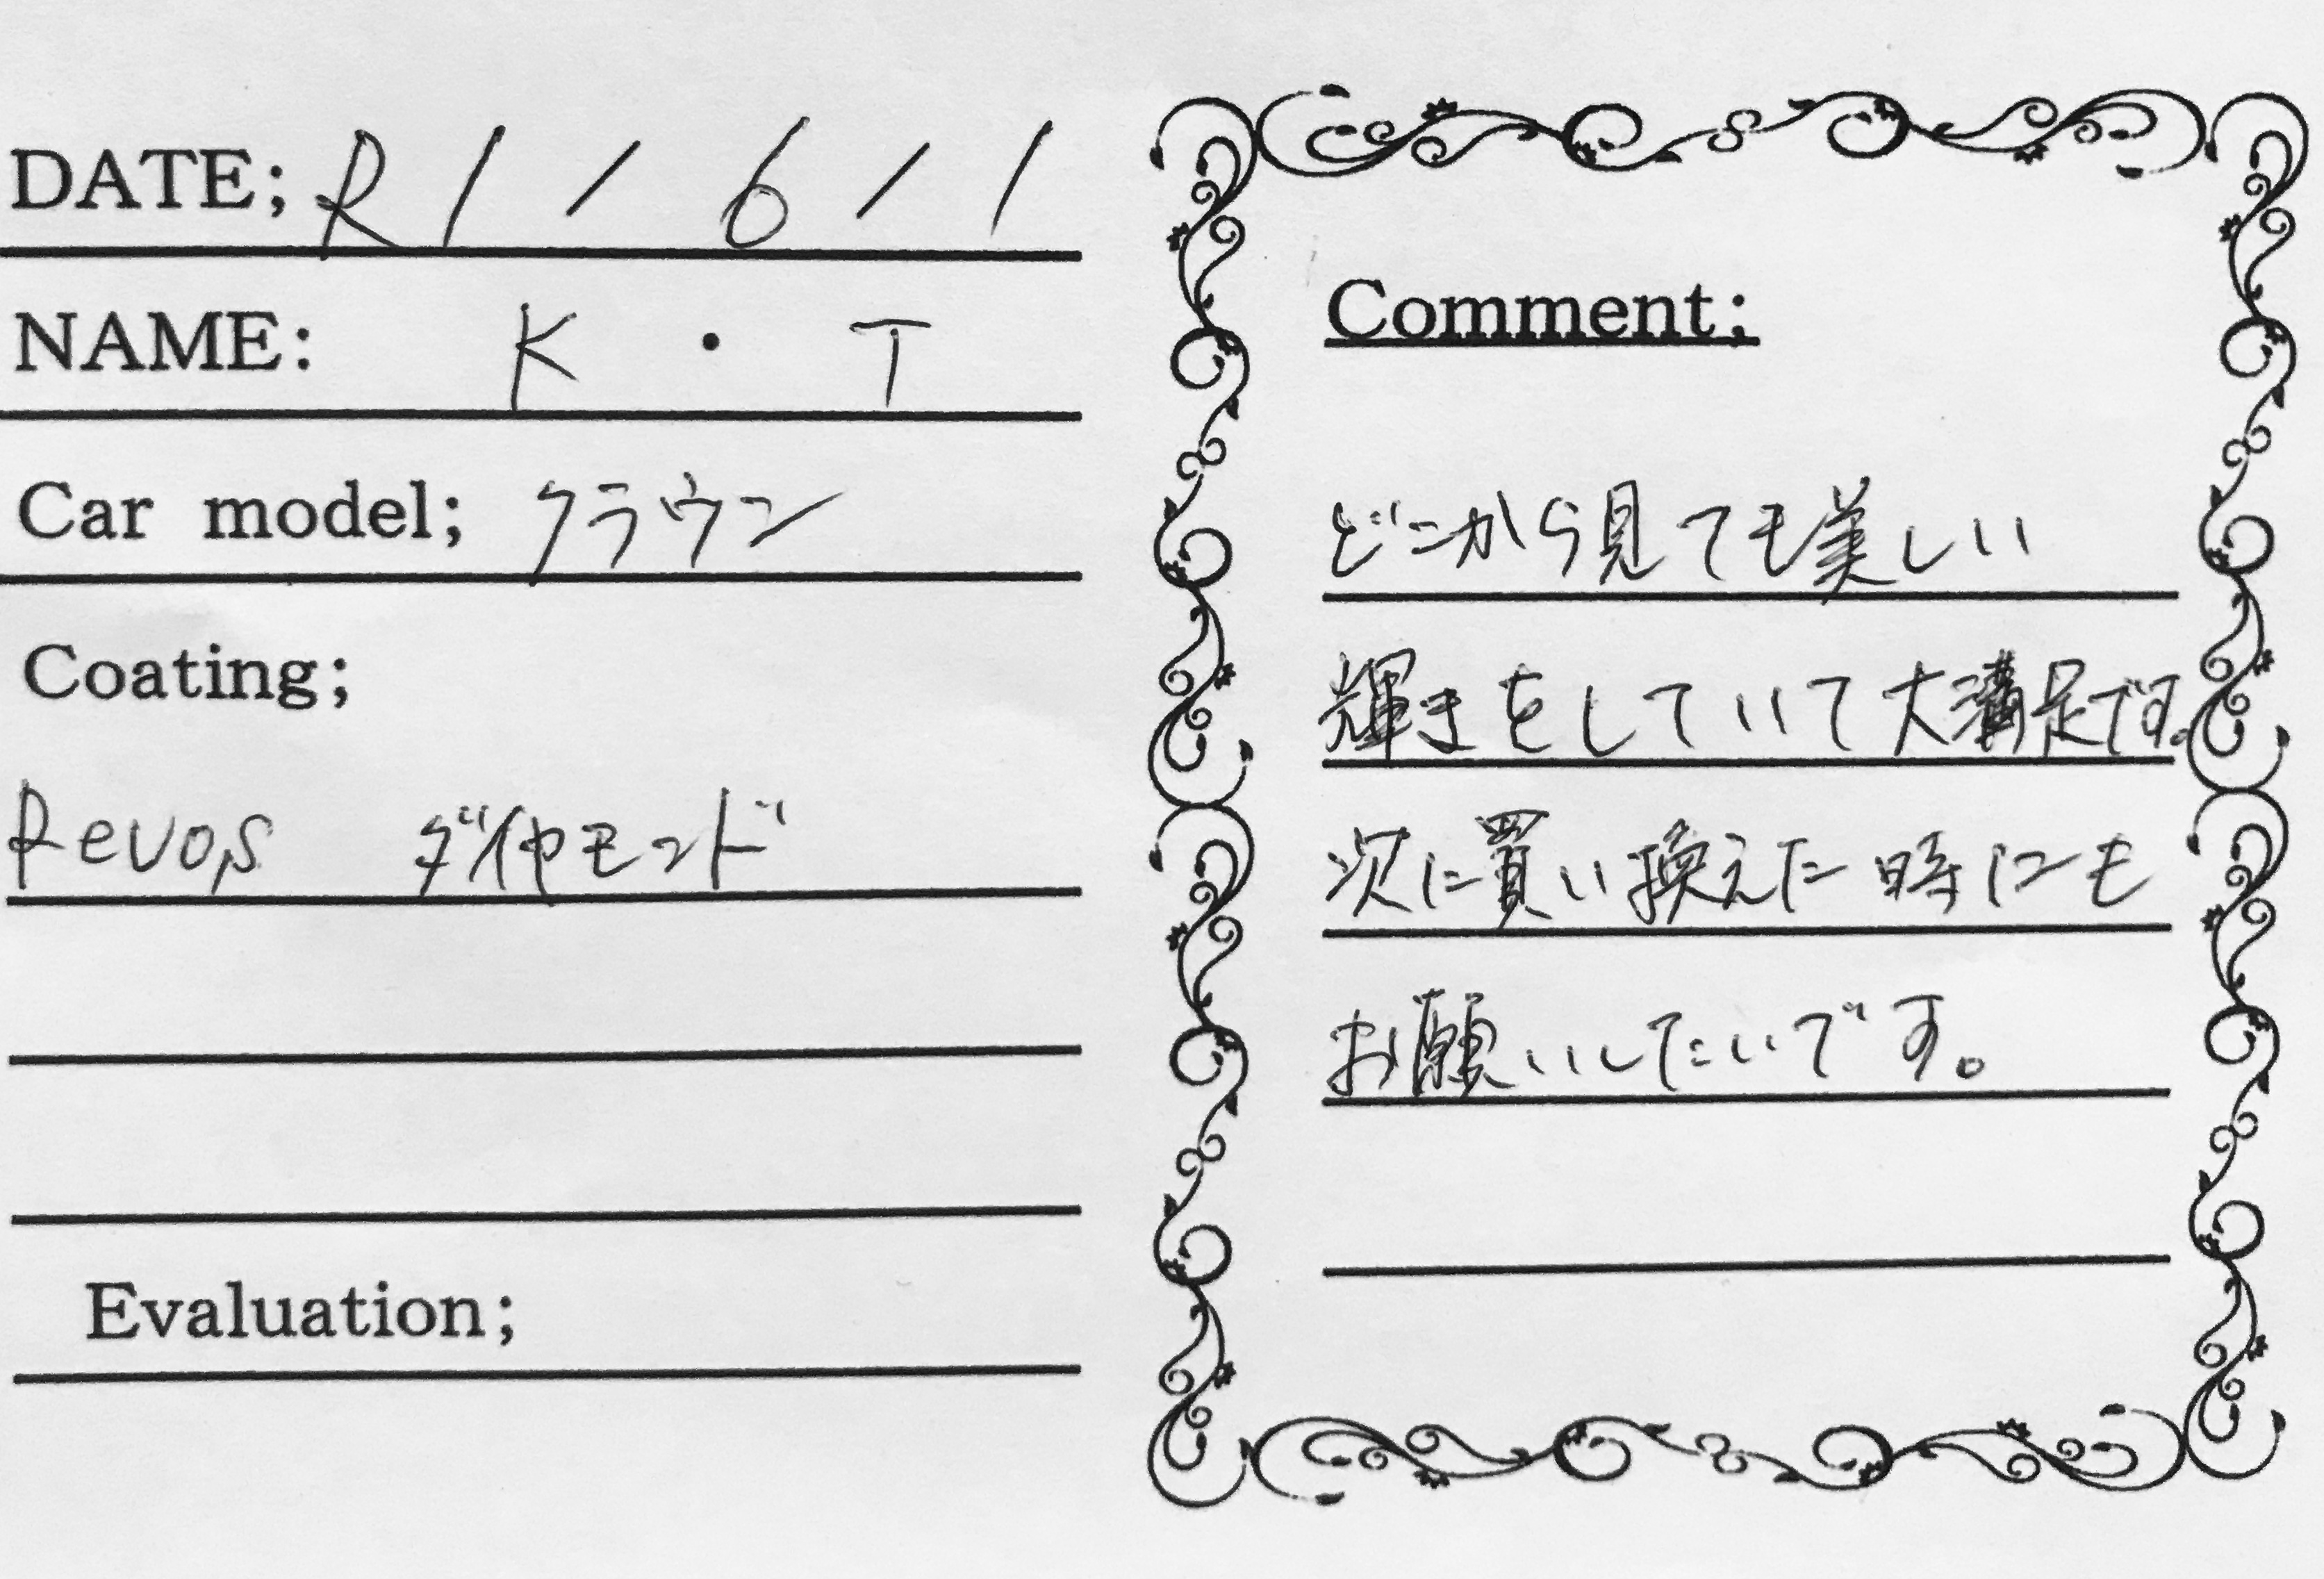 DATE; R1/6/1
NAME: K・T
Car model; クラウン
Coating;
Revos ダイヤモンド
Evaluation;
Comment;
どこから見ても美しい
輝きをしていて大満足です。
次に買い換えた時にも
お願いしたいです。